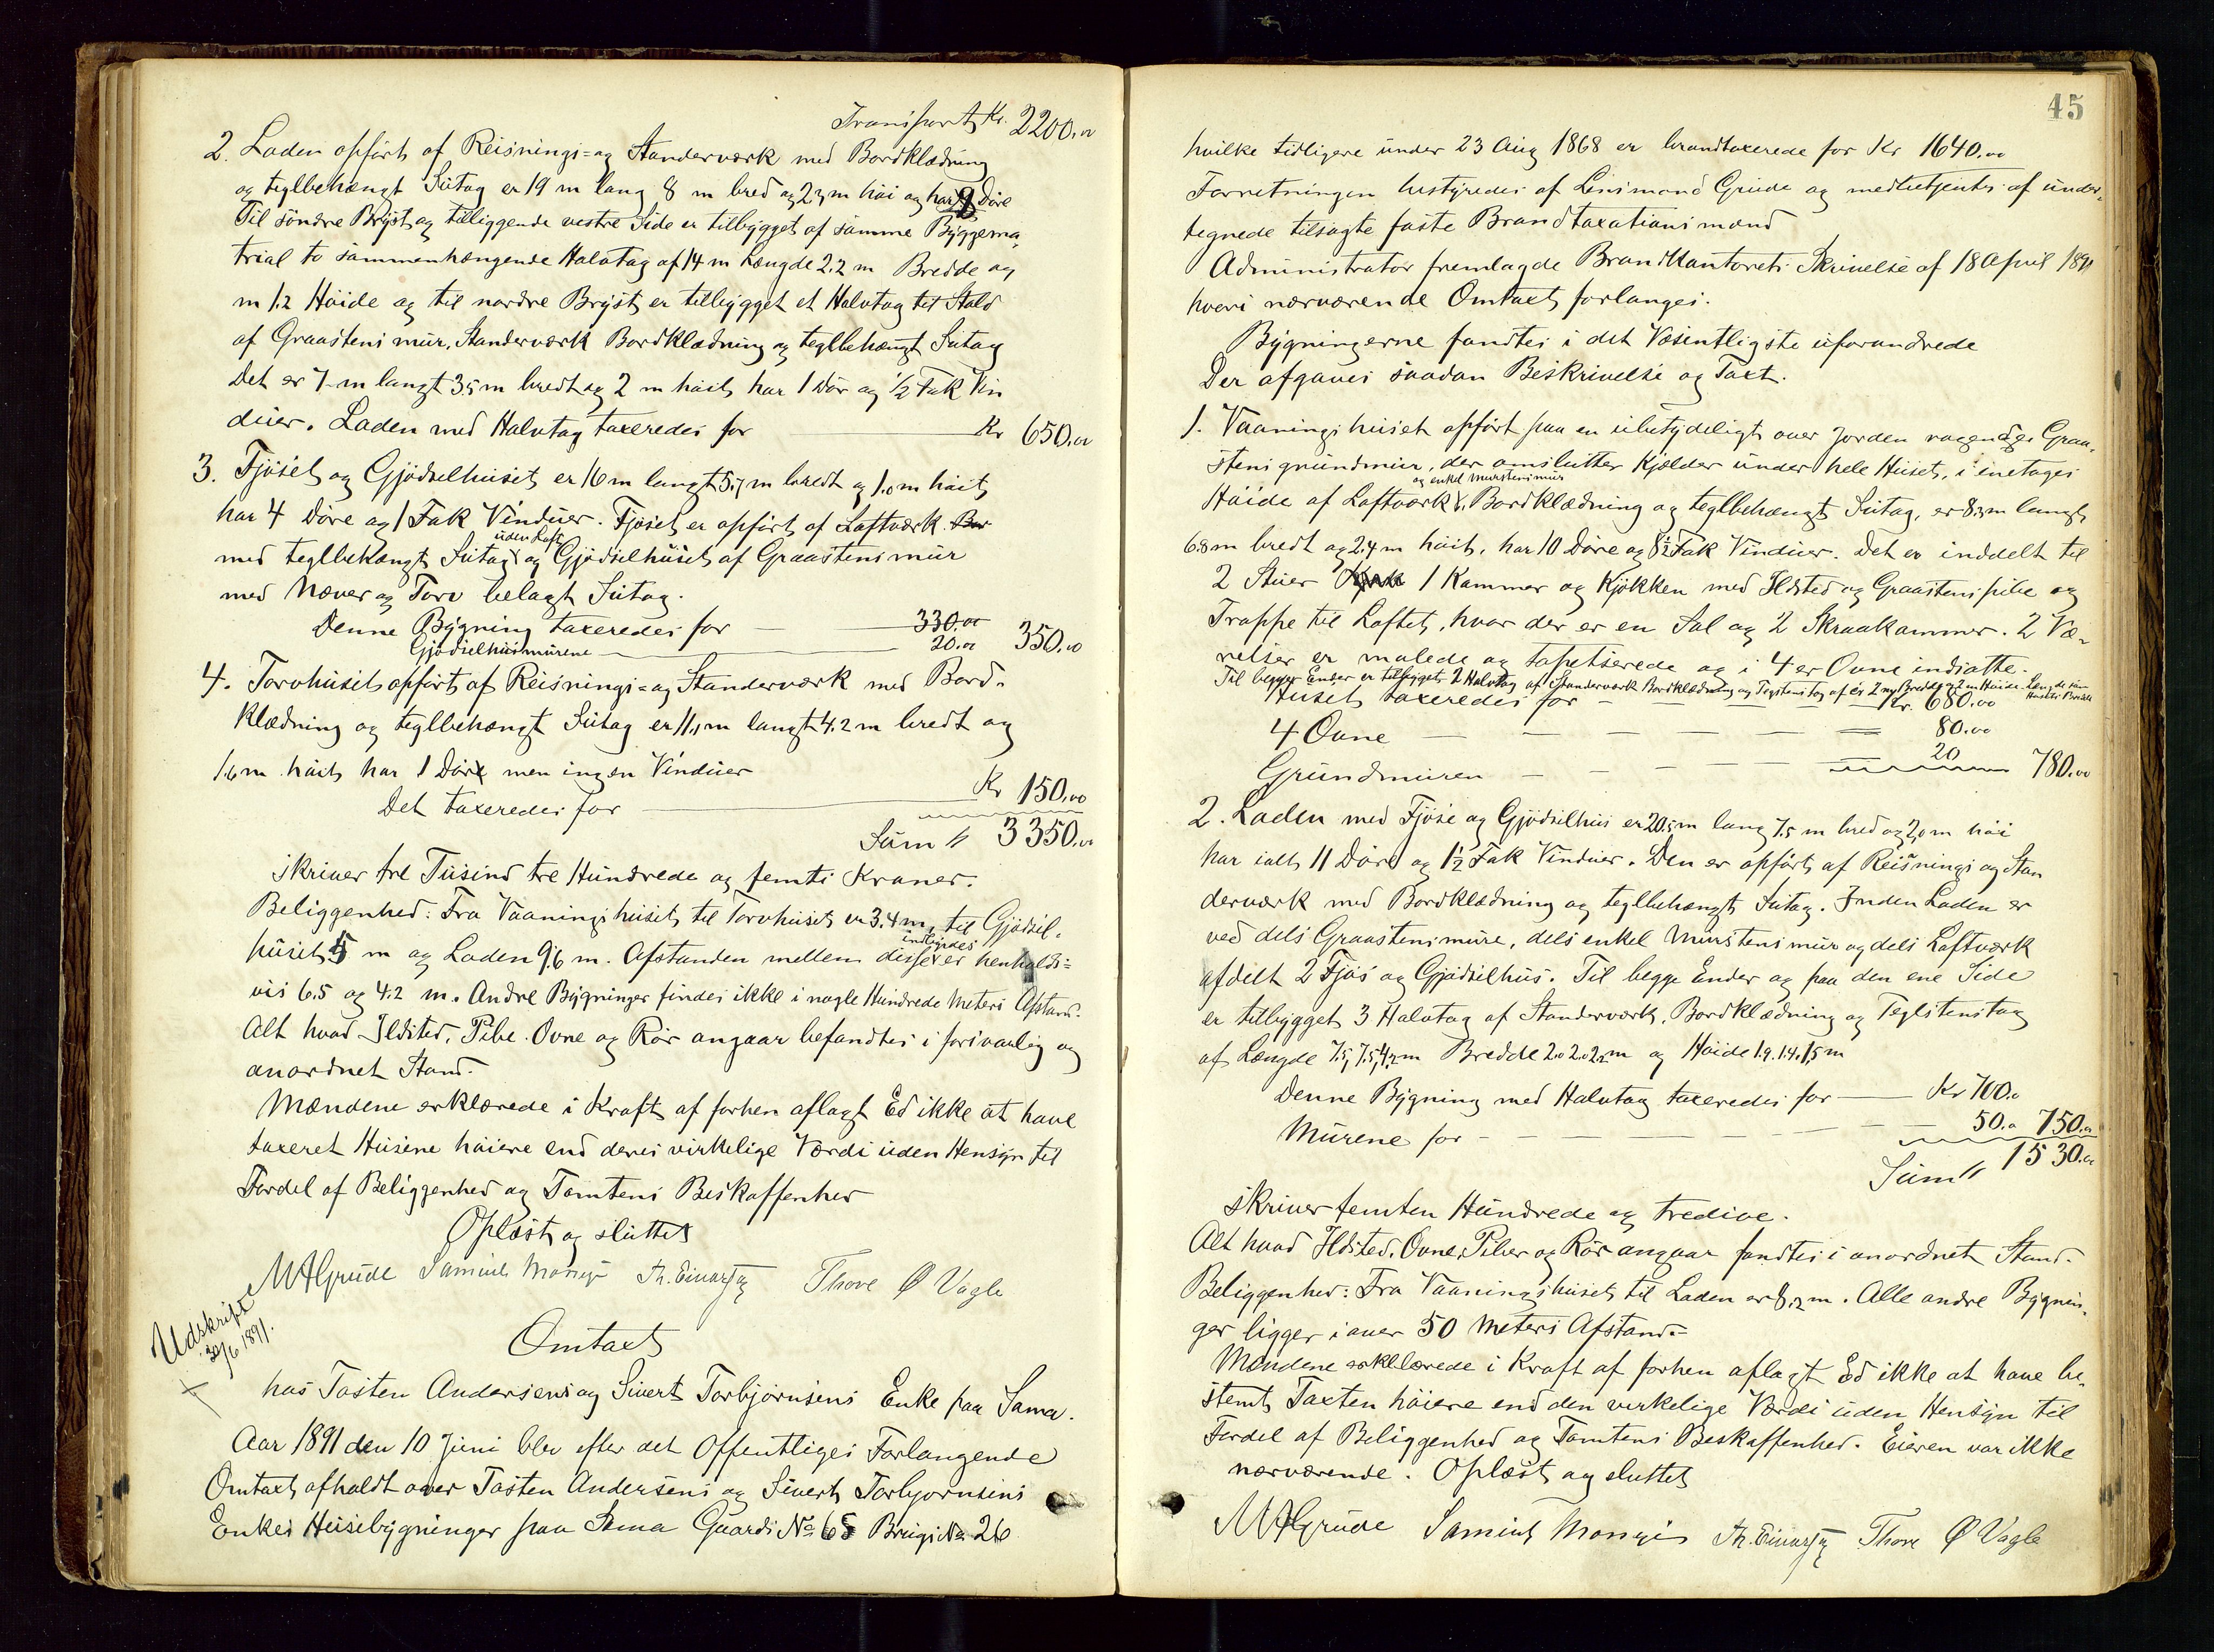 Transport Kr. 2200.00
2. Laden opført af Reisnings=og Standerværk med Bordklædning
og teglbehængt Sutag er 19 m lang 8 m bred og 2,3 m høi og har 9 Døre
Til søndre Bryst og tilliggende vestre Side er tilbygget af samme Byggema-
trial to sammenhængende Halvtag af 14 m Længde 2.2 m Bredde og
m 1.2 Høide og til nordre Bryst er tilbygget et Halvtag til Stald
af Graastensmur, Standerværk Bordklædning og teglbehængt Sutag
Det er 7 m langt 3.5 m bredt og 2 m høit, har 1 Dør og 1/2 Fak Vin
duer. Laden med Halvtag taxeredes for Kr 650.00
3. Fjøset og Gjødselhuset er 16 m langt 5.7 m bredt og 1.0 m høit,
har 4 Døre og 1 Fak Vinduer. Fjøset er opført af Laftværk. Bor
uden Loft
med teglbehængt Sutag og Gjødselhuset af Graastensmur
med Næver og Torv belagt Sutag.
Denne Bygning taxeredes for 330.00
Gjødselhusmurene 20.00 350.00
4. Torvhuset opført af Reisnings=og Standerværk med Bord-
klædning og teglbehængt Sutag er 11,1 m langt 4.2 m bredt og
1.6 m høit, har 1 Dør men ingen Vinduer
Det taxeredes for Kr 150.00
Sum Kr 3350.00
skriver tre Tusind tre Hundrede og femti Kroner.
Beliggenhed: Fra Vaaningshuset til Torvhuset er 3.4 m, til Gjødsel-
indbyrdes
huset 5 m og Laden 9.6 m. Afstanden mellem disse er henholds=
vis 6.5 og 4.2 m. Andre Bygninger findes ikke i nogle Hundrede Meters Afstand.
Alt hvad Ildsted, Pibe. Ovne og Rør angaar befandtes i forsvarlig og
anordnet Stand.
Mændene erklærede i Kraft af forhen aflagt Ed ikke at have
taxeret Husene høiere end deres virkelige Værdi uden Hensyn til
Fordel af Beliggenhed og Tomtens Beskaffenhed
Oplæst og sluttet
M A Grude Samuel Mossige Th. Einarsen Thore Ø Vagle
Udskrift
30/6 1891.
Omtaxt
hos Tosten Andersens og Sivert Torbjørnsens Enke paa Soma.
Aar 1891 den 10 Juni blev efter det Offentliges Forlangende
Omtaxt afholdt over Tosten Andersens og Sivert Torbjørnsens
Enkes Husebygninger paa Soma Gaards No 65 Brugs No 26
45
hvilke tidligere under 23 Aug 1868 er brandtaxerede for Kr 1640.00
Forretningen bestyredes af Lensmand Grude og medbetjentes af under-
tegnede tilsagte faste Brandtaxationsmænd
Administrator fremlagde Brandkantorets Skrivelse af 18 April 1891
hvori nærværende Omtaxt forlanges.
Bygningerne fandtes i det Væsentligste uforandrede
Der afgaves saadan Beskrivelse og Taxt.
1. Vaaningshuset opført paa en ubetydeligt over Jorden ragende Graa-
stensgrundmur, der omslutter Kjælder under hele Huset, i enetages
og enkel Murstensmur
Høide af Laftværk, Bordklædning og teglbehængt Sutag, er 8.3 m langt
6.8 m bredt og 2.4 m høit, har 10 Døre og 8 1/2 Fak Vinduer. Det er inddelt til
2 Stuer 1 Kammer og Kjøkken med Ildsted og Graastenspibe og
Trappe til Loftet, hvor der er en Sal og 2 Skraakammer. 2 Væ-
relser er malede og tapetserede og i 4 er Ovne indsatte.
Til begge Ender er tilbygget 2 Halvtag af Standerværk Bordklædning og Teglstenstag af er 2 m Bredde og 2 m Høide. Længde som
Husets Bredde
Huset taxeredes for Kr. 680.00
4 Ovne 80.00
Grundmuren 20 780.00
2. Laden med Fjøse og Gjødselhus er 20.5 m lang 7.5 m bred og 2,0 m høi
har ialt 11 Døre og 1 1/2 Fak Vinduer. Den er opført af Reisnings og Stan
derværk med Bordklædning og teglbehængt Sutag. Inden Laden er
ved dels Graastensmure, dels enkel Murstensmur og dels Laftværk
afdelt 2 Fjøs og Gjødselhus. Til begge Ender og paa den ene Side
er tilbygget 3 Halvtag af Standerværk, Bordklædning og Teglstenstag
af Længde 7.5, 7.5, 4.2 m Bredde 2.0 2.0 2.2 m og Høide 1.9. 1.4. 1,5 m
Denne Bygning med Halvtag taxeredes for Kr 700.0
Murene for 50.0 750.00
Sum Kr 1530.00
skriver femten Hundrede og tredive.
Alt hvad Ildsted, Ovne, Piber og Rør angaar fandtes i anordnet Stand.
Beliggenhed: Fra Vaaningshuset til Laden er 8,2 m. Alle andre Bygnin-
ger ligger i over 50 Meters Afstand.
Mændene erklærede i Kraft af forhen aflagt Ed ikke at have be-
stemt Taxten høiere end den virkelige Værdi uden Hensyn til
Fordel af Beliggenhed og Tomtens Beskaffenhed. Eieren var ikke
nærværende. Oplæst og sluttet
M A Grude Samuel Mossige Th. Einarsen Thore Ø Vagle